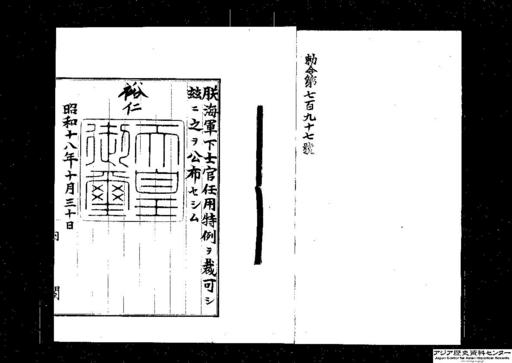 勅令第七百九十七號
朕海軍下士官任用特例ヲ裁可シ
玆ニ之ヲ公布セシム
裕仁
天皇
御璽
昭和十八年十月三十日
内閣
アジア歴史資料センター
Japan Center for Asian Historical Records